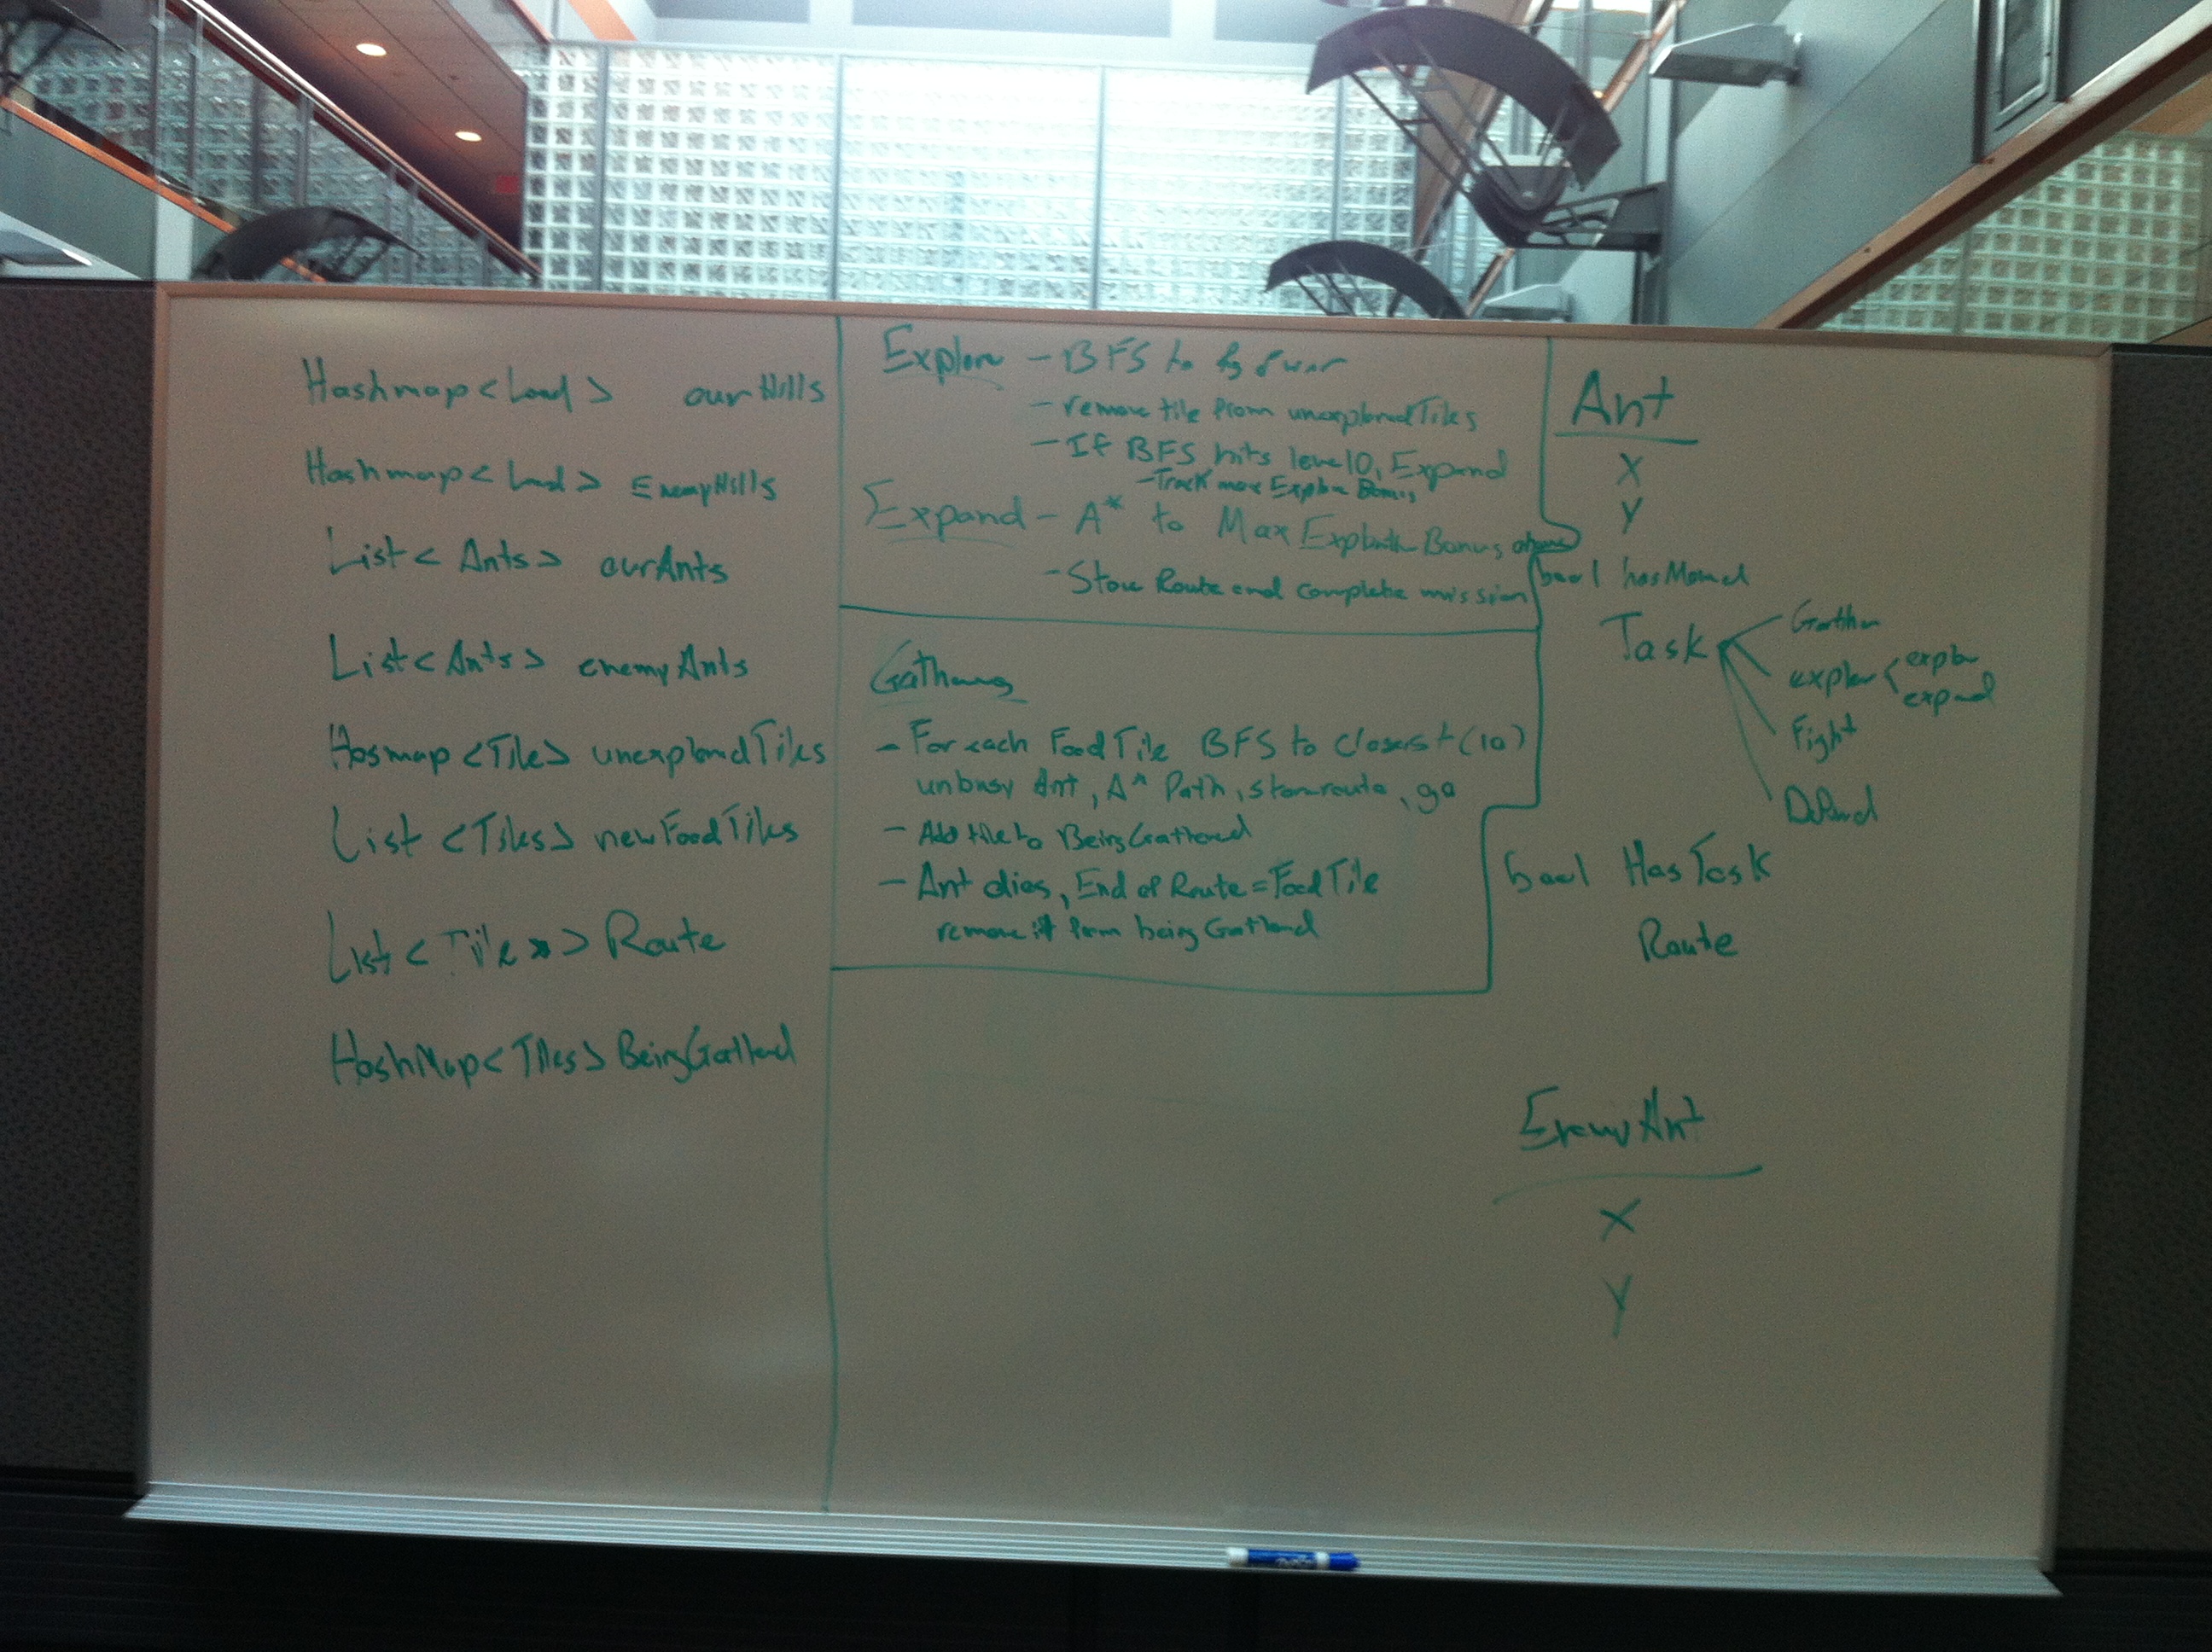 Hashmap<Load> ourHills
Hashmap<Load> EnemyHills
List<Ants> ourAnts
List<Ants> enemyAnts
Hosmap<Tile> unexploredTiles
List<Tiles> newFoodTiles
List<Tile*> Route
HashMap<Tiles> BeingGathered
Explore - BFS to
- remove tile from unexploredTiles
- If BFS hits level 10, Expand
- Track max Explore Bonus
Expand - A* to Max Exploration Bonus
- Store Route and complete mission
Gathering
- For each FoodTile BFS to closest (10)
unbusy Ant, A* Path, store route, go
- Add tile to BeingGathered
- Ant dies, End of Route = FoodTile
remove it from being Gathered
Ant
X
Y
bool hasMoved
Task
Gather
explore
explore
expand
Fight
Defend
bool HasTask
Route
EnemyAnt
X
Y